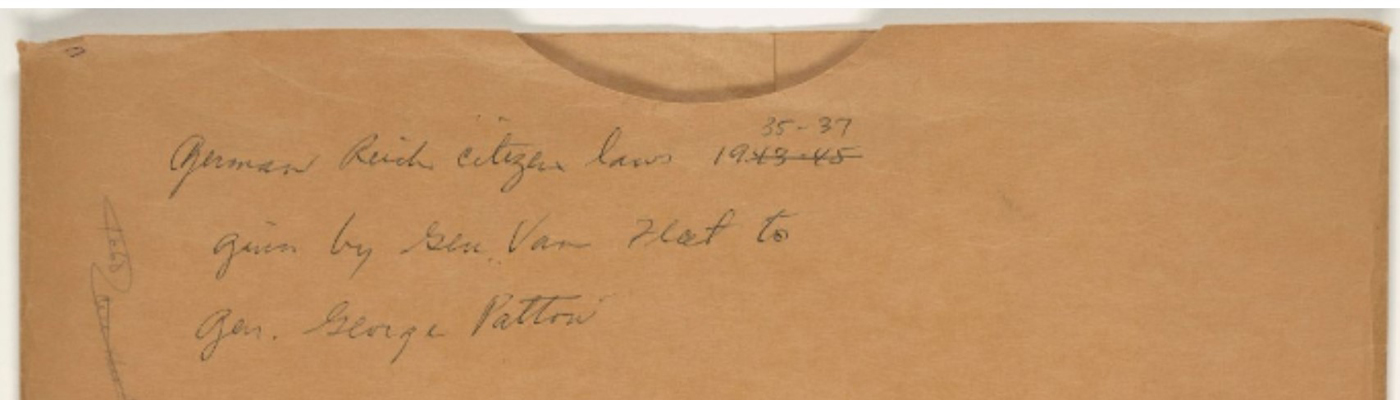 35-37
German Reich citizen laws 1943-45
given by Gen. Van Fleet to
Gen. George Patton